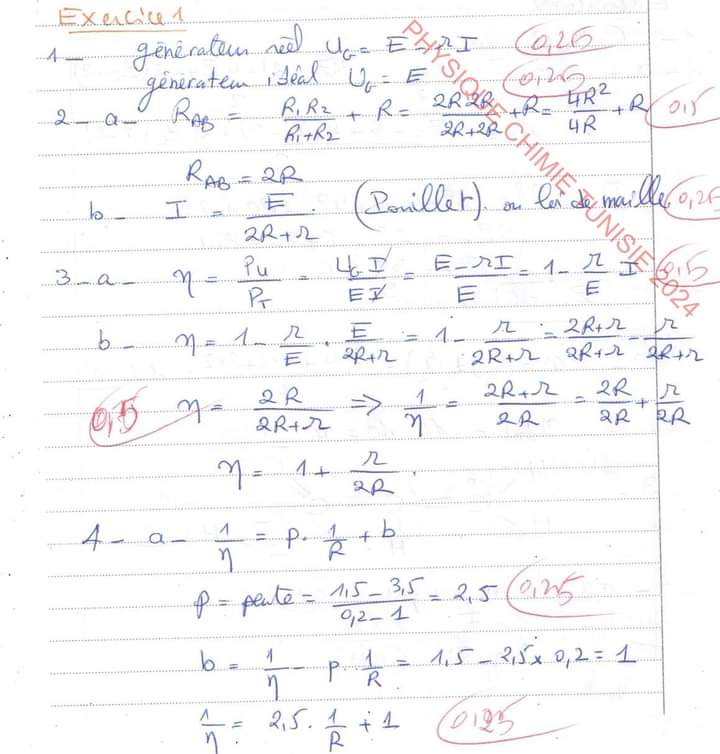 Exercice 1
1- générateur réel U_G = E - rI 0,25
générateur idéal U_G = E 0,25
2- a- R_AB = R₁R₂/(R₁+R₂) + R = 2R 2R/(2R+2R) + R = 4R²/4R + R 0,5
R_AB = 2R
b- I = E/(2R+r). (Pouillet). ou loi de maille 0,25
3-a- η = P_U/P_T = U_G I/EI = (E-rI)/E = 1- r/E I 0,5
b- η = 1- r/E . E/(2R+r) = 1- r/(2R+r) = (2R+r)/(2R+r) - r/(2R+r)
0,5 η = 2R/(2R+r) => 1/η = (2R+r)/2R = 2R/2R + r/2R
η = 1+ r/2R .
4- a- 1/η = p. 1/R + b
p = pente = (1,5-3,5)/(0,2-1) = 2,5 0,25
b = 1/η - p 1/R = 1,5 - 2,5 x 0,2 = 1
1/η = 2,5 . 1/R + 1 0,25
PHYSIQUE CHIMIE TUNISIE 2024